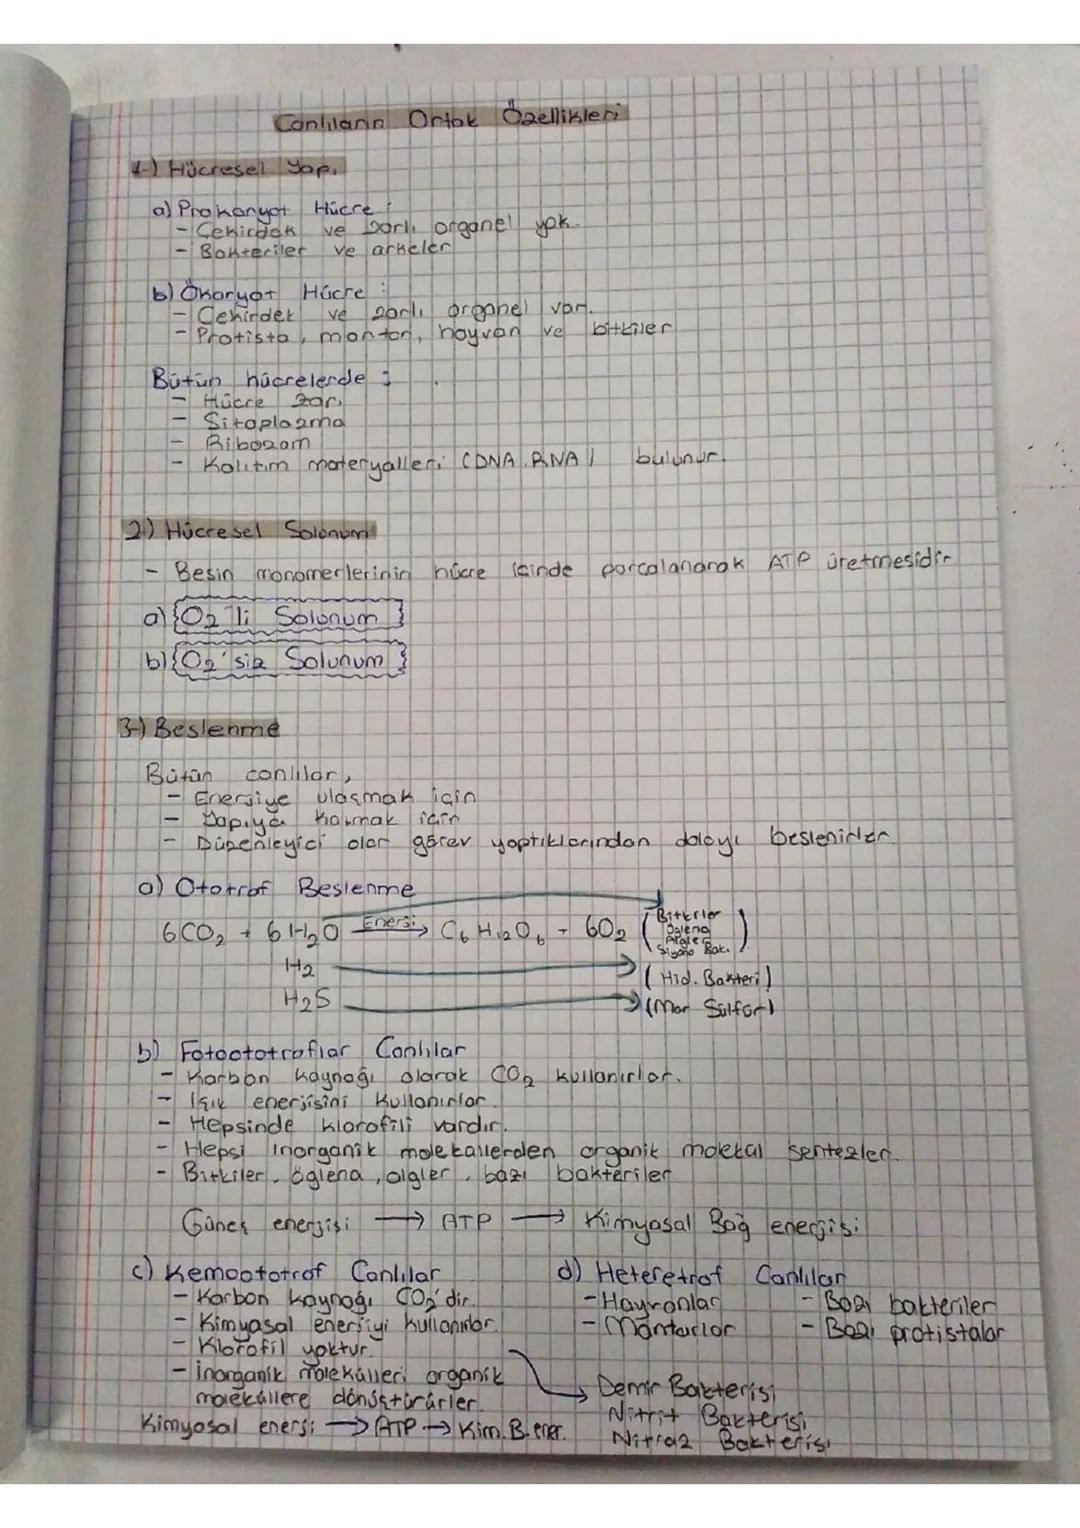 Canlıların Ortak Özellikleri
1-) Hücresel Yapı
a) Prokaryot Hücre :
- Çekirdek ve zarlı organel yok.
- Bakteriler ve arkeler
b) Ökaryot Hücre :
- Çekirdek ve zarlı organel var.
- Protista, mantar, hayvan ve bitkiler
Bütün hücrelerde :
- Hücre zarı
- Sitoplazma
- Ribozom
- Kalıtım materyalleri (DNA, RNA) bulunur.
2-) Hücresel Solunum
- Besin monomerlerinin hücre içinde parçalanarak ATP üretmesidir
a) O2'li Solunum
b) O2'siz Solunum
3-) Beslenme
Bütün canlılar,
- Enerjiye ulaşmak için
- Yapıya katmak için
- Düzenleyici olar görev yaptıklarından dolayı beslenirler.
a) Ototrof Beslenme
6CO2 + 6H2O Enerji → C6H12O6 + 6O2 (Bitkiler Öglena Algler Siyano Bak.)
H2 → (Hid. Bakteri)
H2S → (Mor Sülfür)
b) Fotoototroflar Canlılar
- Karbon kaynağı olarak CO2 kullanırlar.
- Işık enerjisini kullanırlar.
- Hepsinde klorofili vardır.
- Hepsi inorganik moleküllerden organik molekül sentezler.
- Bitkiler, öglena, algler, bazı bakteriler
Güneş enerjisi → ATP → Kimyasal Bağ enerjisi
c) Kemoototrof Canlılar
- Karbon kaynağı CO2'dir.
- Kimyasal enerjiyi kullanırlar.
- Klorofil yoktur.
- İnorganik molekülleri organik
moleküllere dönüştürürler.
Kimyasal enerji → ATP → Kim. B. ener.
d) Heteretrof Canlılar
- Hayvanlar - Bazı bakteriler
- Mantarlar - Bazı protistalar
Demir Bakterisi
Nitrit Bakterisi
Nitraz Bakterisi